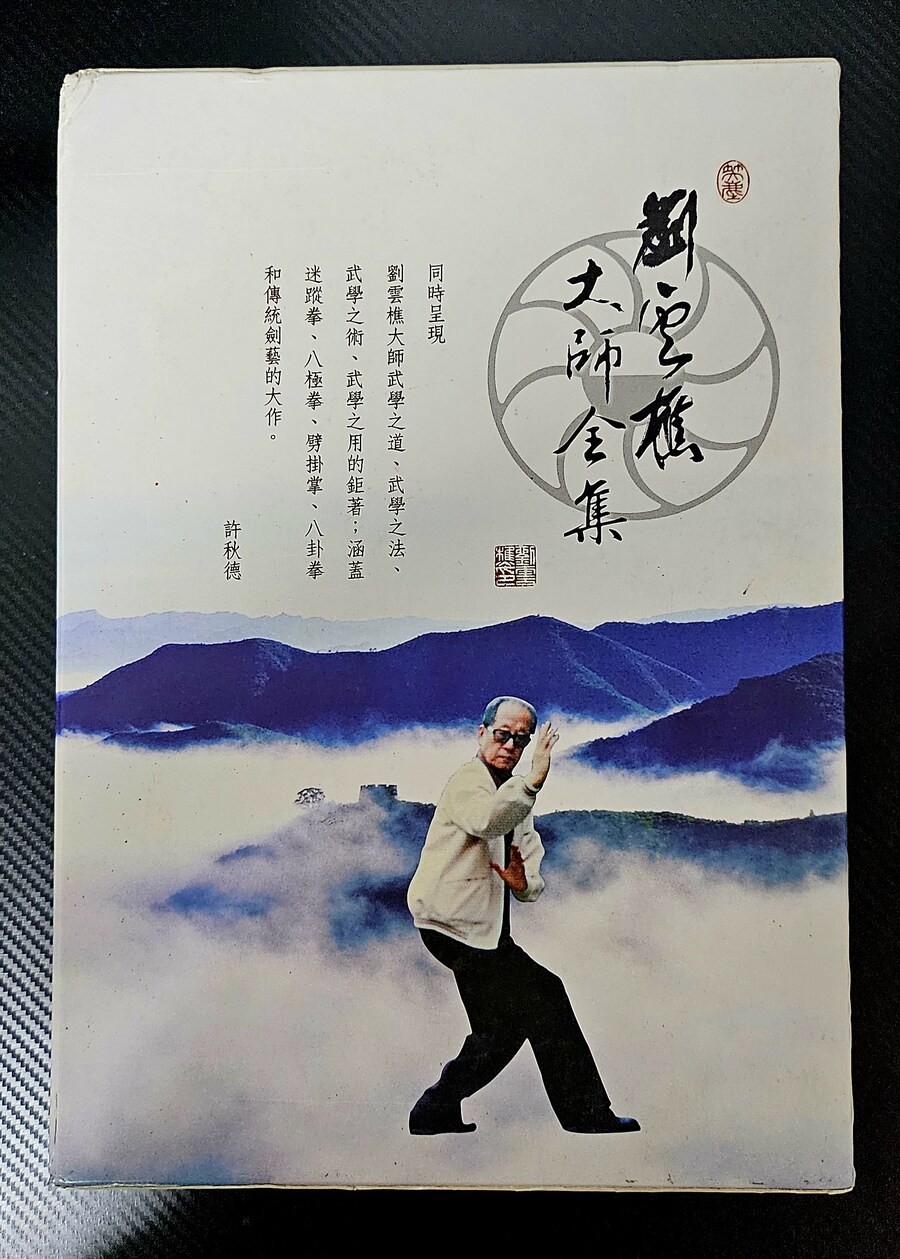 劉雲樵
大師全集
同時呈現
劉雲樵大師武學之道、武學之法、
武學之術、武學之用的鉅著；涵蓋
迷蹤拳、八極拳、劈掛掌、八卦拳
和傳統劍藝的大作。
許秋德